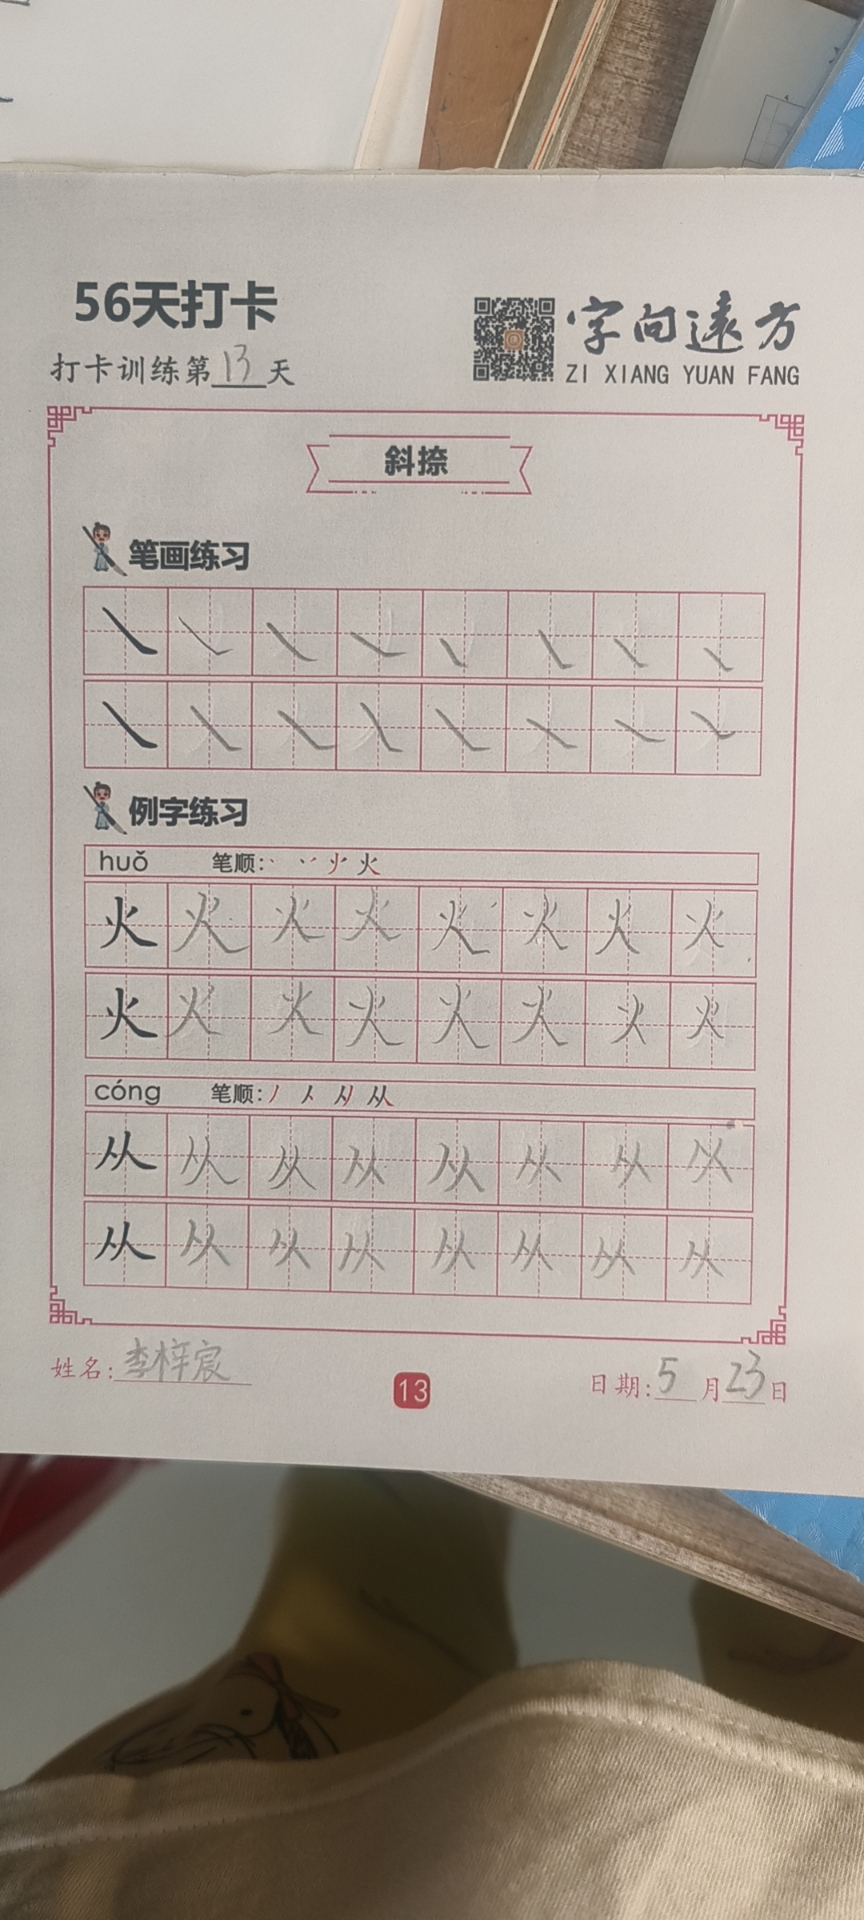 56天打卡
打卡训练第13天
字向遠方
ZI XIANG YUAN FANG
斜捺
笔画练习
例字练习
huǒ 笔顺: 火
火 火 火 火 火 火 火 火
火 火 火 火 火 火 火 火
cóng 笔顺: 丿 从
从 从 从 从 从 从 从 从
从 从 从 从 从 从 从 从
姓名:李梓宸
13
日期:5月23日